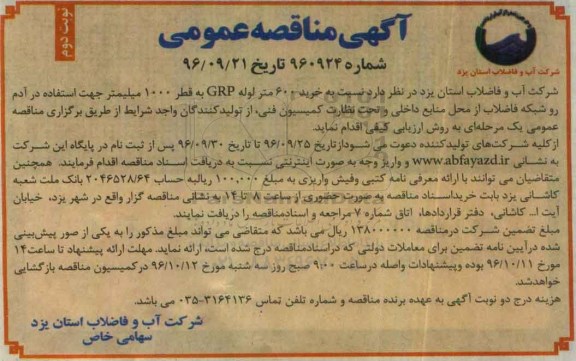 نوبت دوم
آگهی مناقصه عمومی
شماره ۹۶۰۹۲۴ تاریخ ۹۶/۰۹/۲۱
شرکت آب و فاضلاب استان یزد
شرکت آب و فاضلاب استان یزد در نظر دارد نسبت به خرید ۶۰۰ متر لوله GRP به قطر ۱۰۰۰ میلیمتر جهت استفاده در آدم
رو شبکه فاضلاب از محل منابع داخلی و تحت نظارت کمیسیون فنی، از تولیدکنندگان واجد شرایط از طریق برگزاری مناقصه
عمومی یک مرحله‌ای به روش ارزیابی کیفی اقدام نماید.
ازکلیه شرکت‌های تولیدکننده دعوت می شود ازتاریخ ۹۶/۰۹/۲۵ تا تاریخ ۹۶/۰۹/۳۰ پس از ثبت نام در پایگاه این شرکت
به نشانی www.abfayazd.ir و واریز وجه به صورت اینترنتی نسبت به دریافت اسناد مناقصه اقدام فرمایند. همچنین
متقاضیان می توانند با ارائه معرفی نامه کتبی وفیش واریزی به مبلغ ۱۰۰,۰۰۰ ریالبه حساب ۲۰۴۶۵۲۸/۶۴ بانک ملت شعبه
کاشانی یزد بابت خریداسناد مناقصه به صورت حضوری از ساعت ۸ تا ۱۴ به نشانی مناقصه گزار واقع در شهر یزد، خیابان
آیت ا... کاشانی، دفتر قراردادها، اتاق شماره ۷ مراجعه و اسنادمناقصه را دریافت نمایند.
مبلغ تضمین شرکت درمناقصه ۱۳۸۰۰۰۰۰۰ ریال می باشد که متقاضی می تواند مبلغ مذکور را به یکی از صور پیش‌بینی
شده درآیین نامه تضمین برای معاملات دولتی که دراسنادمناقصه درج شده است، ارائه نماید. مهلت ارائه پیشنهاد تا ساعت۱۴
مورخ ۹۶/۱۰/۱۱ بوده وپیشنهادات واصله درساعت ۹:۰۰ صبح روز سه شنبه مورخ ۹۶/۱۰/۱۲ درکمیسیون مناقصه بازگشایی
خواهدشد.
هزینه درج دو نوبت آگهی به عهده برنده مناقصه و شماره تلفن تماس ۳۱۶۴۱۳۶-۰۳۵ می باشد.
شرکت آب و فاضلاب استان یزد
سهامی خاص